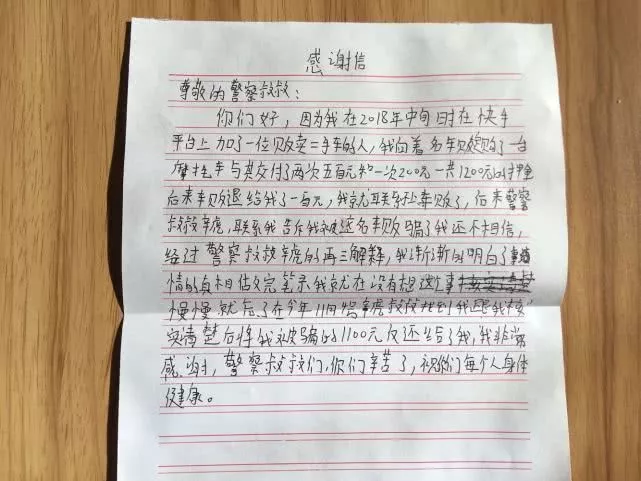 感谢信
尊敬的警察叔叔：
你们好，因为我在2018年中旬时在快手
平台上加了一位贩卖二手车的人，我向着名车贩购了一台
摩托车与其交付了两次五百元和一次200元一共1200元的押金
后来车贩退给我了一百元，我就联系不上车贩了，后来警察
叔叔辛虎，联系我告斥我被这名车贩骗了我还不相信，
经过警察叔叔辛虎的再三解释，我渐渐的明白了事
情的真相估文完笔录我就在没有想这事
慢慢就忘了在今年11月 辛虎叔叔找到我跟我核
实清楚后将我被骗的1100元反还给了我，我非常
感谢，警察叔叔们，你们辛苦了，祝你们每个人身体
健康。